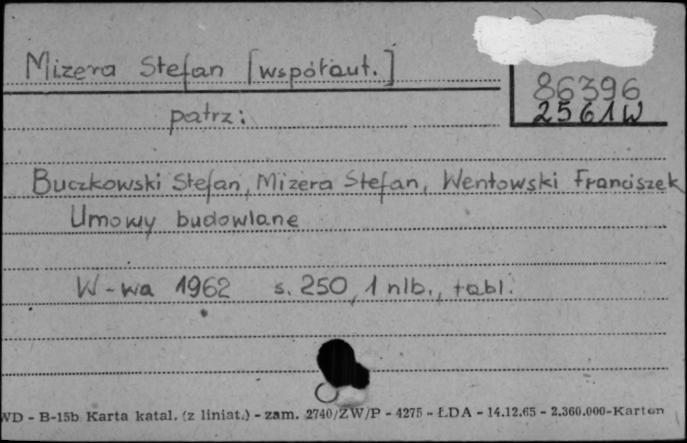 Mizera Stefan [współaut.]
86396
2561W
patrz:
Buczkowski Stefan, Mizera Stefan, Wentowski Franciszek
Umowy budowlane
W-wa 1962 s. 250, 1 nlb., tabl.
WD - B-15b Karta katal. (z liniat.) - zam. 2740/ZW/P - 4275 - ŁDA - 14.12.65 - 2.360.000-Karton